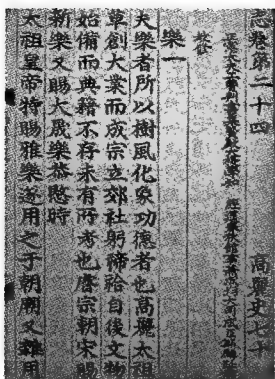 志卷第二十四 高麗史七十
樂一
夫樂者所以樹風化象功德者也高麗太祖
草創大業而成宗立郊社躬禘祫自後文物
始備而典籍不存未有所考也睿宗朝宋賜
新樂又賜大晟樂恭愍時
太祖皇帝特賜雅樂遂用之于朝廟又雜用